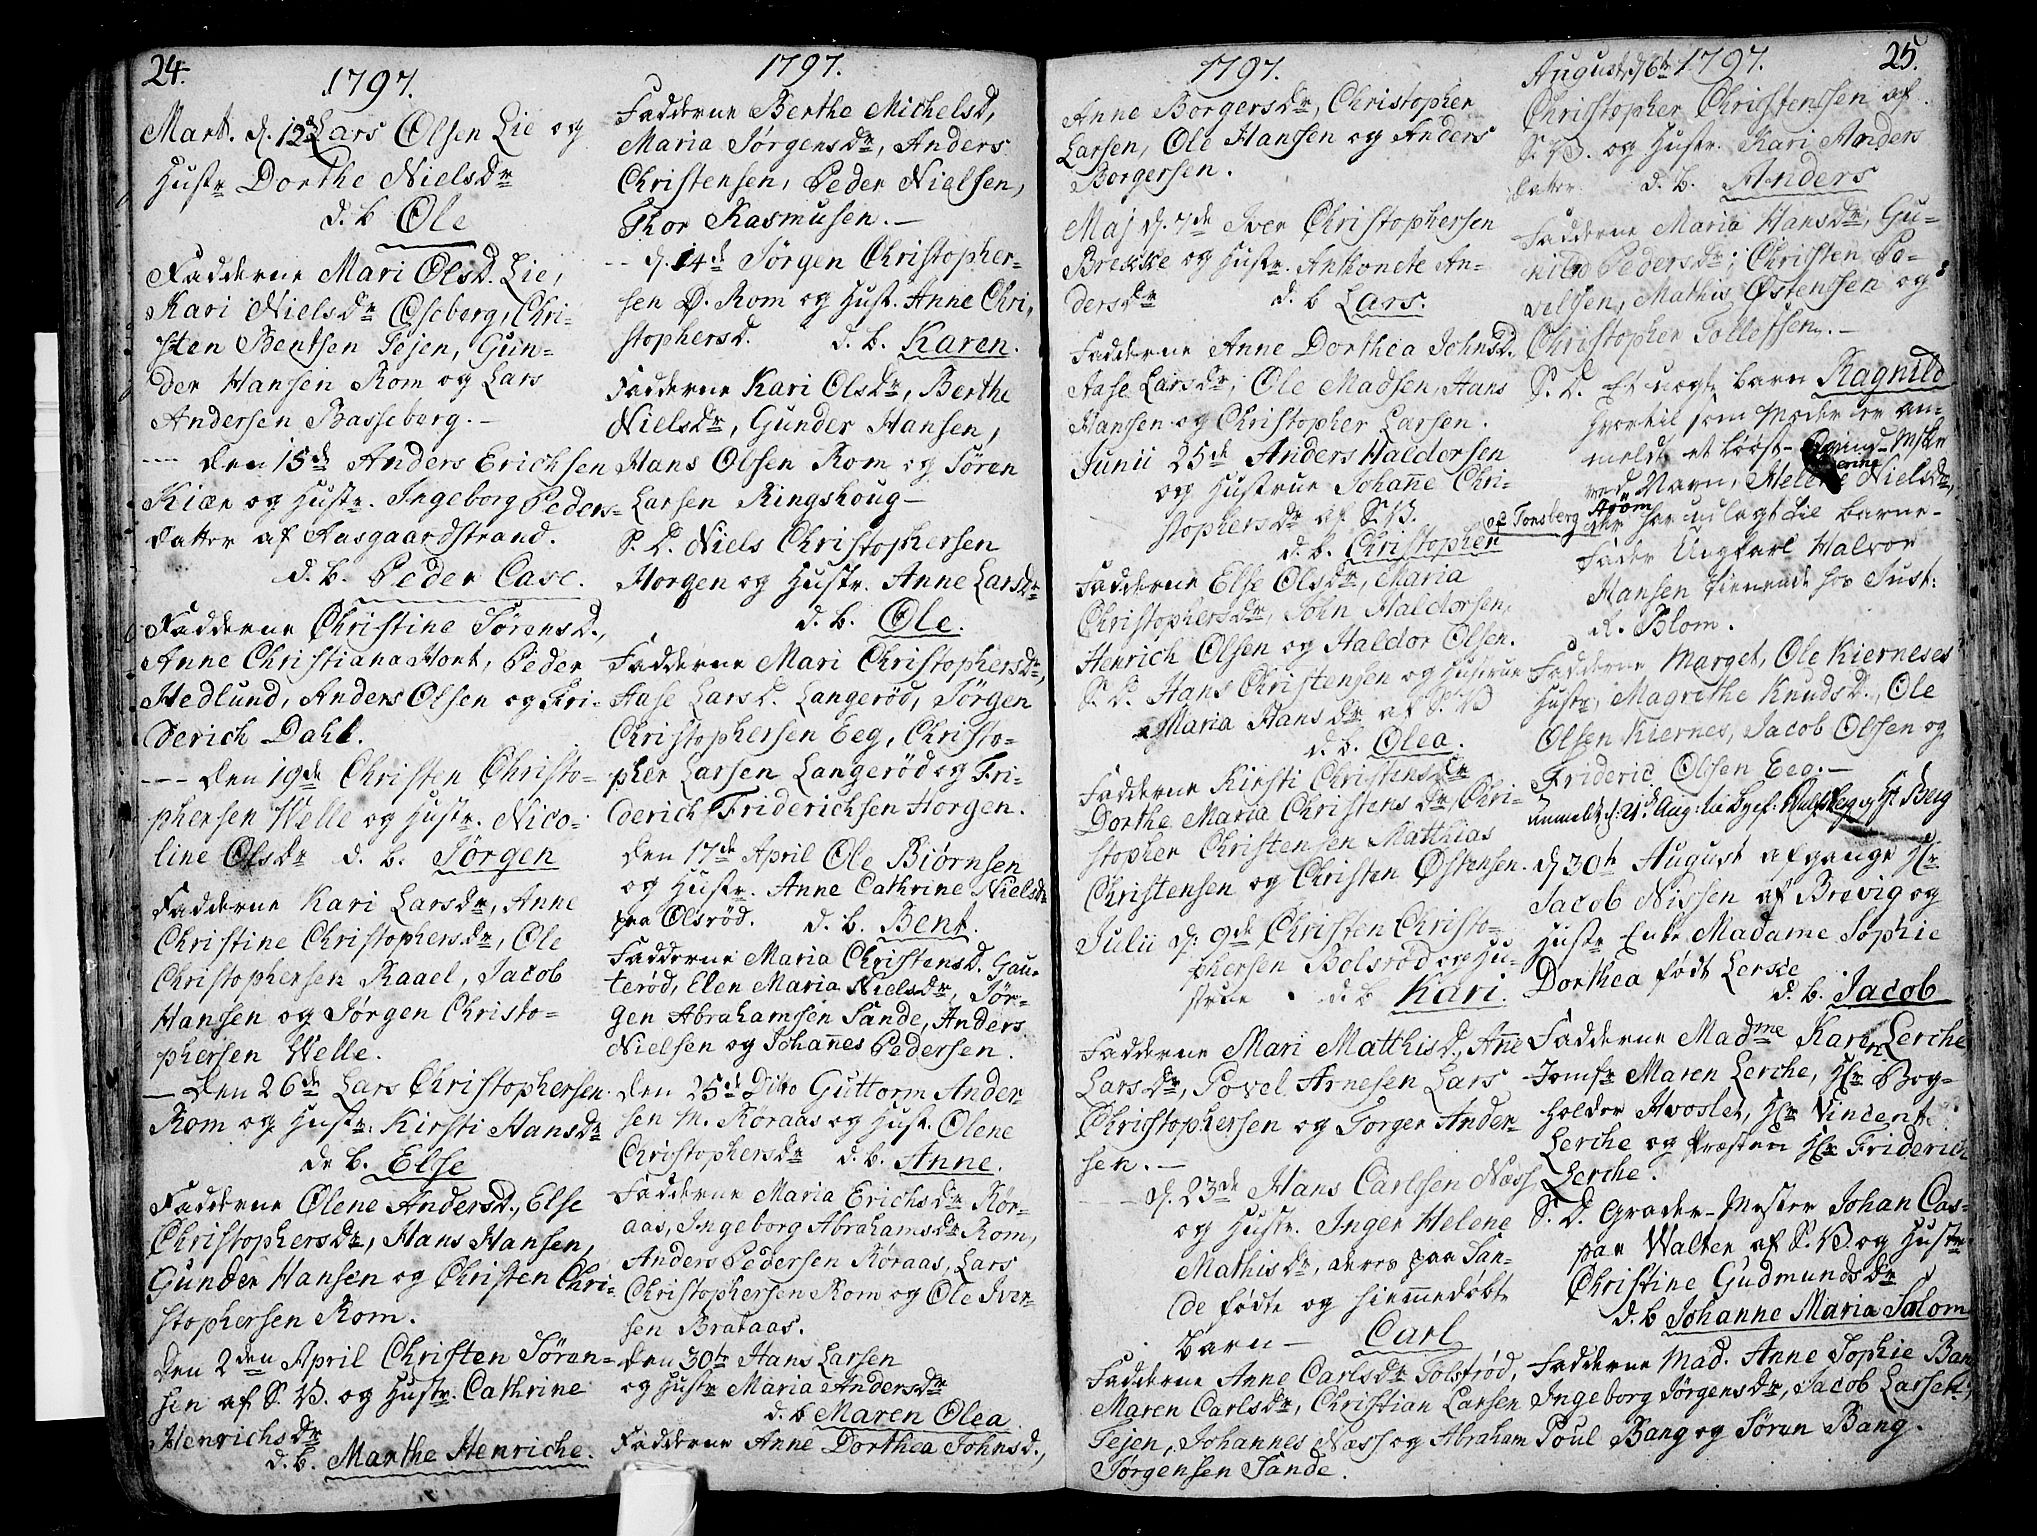 24.
1797.
Mart. d. 12te Lars Olsen Lie og
Hustr Dorthe Nielsdr
d. b Ole
Fadderne Mari OlsD. Lie,
Kari Nielsdr Oseberg, Chri-
sten Bentsen Tejen, Gun-
der Hansen Rom og Lars
Andersen Basseberg. –
--- den 15de Anders Erichsen
Kiær og Hustr. Ingeborg Peders-
datter af Aasgaardstrand.
d. b. Peder Case.
Fadderne Christine SørensD.,
Anne Christiana Hont, Peder
Hedlund, Anders Olsen og Fri-
derich Dahl.
--- den 19de Christen Christo-
phersen Velle og Hustr. Nico-
line Olsdr d. b. Jørgen
Fadderne Kari Larsdr, Anne
Christine Christophersdr, Ole
Christophersen Raael, Jacob
Hansen og Jørgen Christo-
phersen Velle.
— den 26de Lars Christophersen
Rom og Hustr. Kirsti Hansdr
d. b. Else
Fadderne Olene AndersD., Else
Christophersdr, Hans Hansen,
Gunder Hansen og Christen Chri-
stophersen Rom.
den 2den April Christen Søren-
sen af S. V. og Hustr. Cathrine
Henrichsdr
d. b. Marthe Henriche.
1797.
Fadderne Berthe MichelsD,
Maria Jørgensdr, Anders
Christensen, Peder Nielsen,
Thor Rasmusen. –
-- d. 14de Jørgen Christopher-
sen Ø. Rom og Hust. Anne Chri-
stophersD. d. b. Karen.
Fadderne Kari Olsdr, Berthe
Nielsdr, Gunder Hansen,
Hans Olsen Rom og Søren
Larsen Ringshoug –
S. D. Niels Christophersen
Horgen og Hustr. Anne Larsdr
d. b. Ole.
Fadderne Mari Christophersdr,
Aase LarsD. Langerød, Jørgen
Christophersen Eeg, Christo-
pher Larsen Langerød og Fri-
derich Friderichsen Horgen.
den 17de April Ole Biørnsen
og Hustr. Anne Cathrine Nielsdr
paa Olsrød. d. b. Bent.
Fadderne Maria ChristensD. Gau-
terød, Elen Maria Nielsdr, Jør-
gen Abrahamsen Sande, Anders
Nielsen og Johannes Pedersen.
den 25de Dito Guttorm Ander-
sen M. Røraas og Hust. Olene
Christophersdr d. b. Anne.
Fadderne Maria Erichsdr Rør-
aas, Ingeborg Abrahamsdr Rom,
Anders Pedersen Røraas, Lars
Christophersen Rom og Ole Iver-
sen Brataas.
den 30te Hans Larsen
og Hustr Maria Andersdr
d. b Maren Olea
Fadderne Anne Dorthea JohnsD.,
1797.
Anne Borgersdr, Christopher
Larsen, Ole Hansen og Anders
Borgersen.
Maj d. 7de Iver Christophersen
Brekke og Hustr. Anthonete An-
dersdr d. b Lars.
Fadderne Anne Dorthea JohnsD.
Aase Larsdr, Ole Madsen, Hans
Hansen og Christopher Larsen.
Junii 25de Anders Haldorsen
og Hustrue Johanne Chri-
stophersdr af S. V.
d. b. Christopher
Fadderne Else Olsdr, Maria
Christophersdr, John Haldorsen,
Henrich Olsen og Haldor Olsen.
S. D. Hans Christensen og Hustrue
Maria Hansdr af S. V
d. b. Olea.
Fadderne Kirsti Christensdr
Dorthe Maria Christensdr, Chri-
stopher Christensen Matthias
Christensen og Christen Østensen.
Julii d. 9de Christen Christo-
phersen Bolsrød og Hu-
strue d. b Kari.
Fadderne Mari MatthisD., Anne
Larsdr, Povel Arnesen Lars
Christophersen og Torger Ander-
sen. –
d. 23de Hans Carlsen Næss
og Hustr. Inger Helene
Mathisdr, deres paa San-
de fødte og hiemmedøbte
Barn – Carl
Fadderne Anne Carlsdr Tolsrød,
Maren Carlsdr, Christian Larsen
Tejen, Johannes Næss og Abraham
Jørgensen Sande.
25.
August d. 6te 1797.
Christopher Christensen af
S. V. og Hustr. Kari Anders
datter d. b. Anders
Fadderne Maria Hansdr, Gu-
nild Pedersdr, Christen Po-
velsen, Mathis Østensen og
Christopher Tollefsen. –
S. D. Et uægte Barn Ragnild
hvortil som Moder er an-
meldt et løost Qvind-Mske
ved Navn, Helene Nielsdr,
af Tønsberg
der har udlagt til Barne-
fader Ungkarl Halvor
Hansen tienende hos Just:
R. Blom.
Fadderne Marget, Ole Kierneses
Hustr, Magrethe KnudsD., Ole
Olsen Kiernes, Jacob Olsen og
Frideric Olsen Eeg. –
d. 30te August afgangne Hr
Jacob Nissen af Brevig og
Hustr Enke Madame Sophie
Dorthea født Lerche
d. b. Jacob
Fadderne Madme Karen Lerche
Jomfr Maren Lerche, Hr Bog-
holder Hvoslef, Hr Vincent
Lerche og Præsten Hr Friderich
Lerche.
S. D. Garder-Mester Johan Cas-
par Walter af S. V. og Hustr
Christine Gudmundsdr
d. b Johanne Maria Salom
Fadderne Mad. Anne Sophie Bang
Ingeborg Jørgensdr, Jacob Larsen,
Poul Bang og Søren Bang.